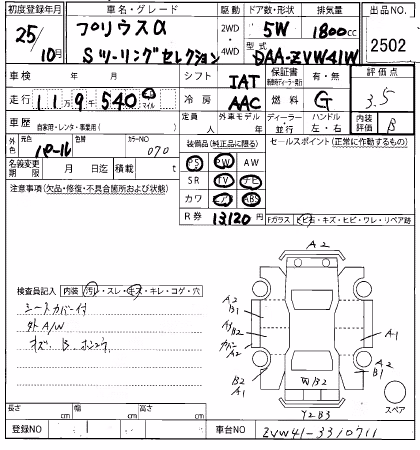 初度登録年月 車名・グレード 駆動 ドア数・形状 排気量 出品NO
25/10月 プリウスα Sツーリングセレクション 2WD・4WD 5W 1800cc 2502
型式 DAA-ZVW41W
車検 年 月 シフト IAT 保証書 有・無 評価点 3.5
走行 11万9千540 マイル 冷房 AAC 燃料 G
車歴 自家用・レンタ・事業用( ) 定員 人 外車モデル 年 ディーラー・並行 ハンドル 左・右 内装評価 B
外色 元色 パール 色替 カラーNO 070 装備品(純正品に限る) セールスポイント(正常に作動するもの)
名義変更期限 月 日迄 積載 t PS PW AW
注意事項(欠品・修復・不具合箇所および状態) SR TV ナビ
カワ エアB ABS
R券 13,120 Fガラス・ヒビ石・キズ・ヒビ・ワレ・リペア跡
検査員記入 内装(汚レ・スレ・キズ・キレ・コゲ・穴
シートカバー付
外A/W
キズ、B、
A2
A2
B1
B2
カバー
A2
B2
A1
A1
A2
B1
W B2
Y2 B3
スペア
長さ cm 幅 cm 高さ cm
登録NO 車台NO ZVW41-3310711